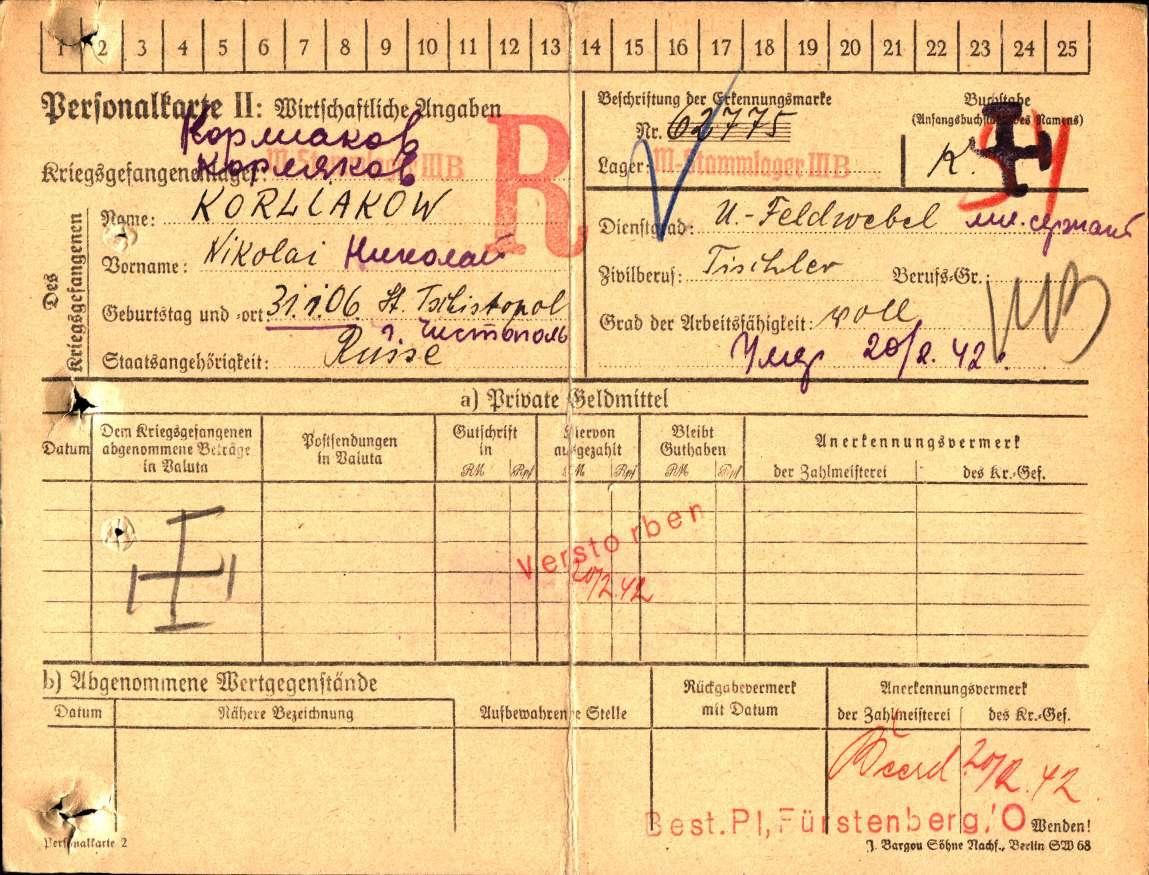 1 2 3 4 5 6 7 8 9 10 11 12 13 14 15 16 17 18 19 20 21 22 23 24 25
Personalkarte II: Wirtschaftliche Angaben
Кормаков
Корляков
Kriegsgefangenenlager: M-Stammlager III B
R
Des Kriegsgefangenen
Name: KORLIAKOW
Vorname: Nikolai Николай
Geburtstag und -ort: 31.1.06. St. Tschistopol
г. Чистополь
Staatsangehörigkeit: Russe
Beschriftung der Erkennungsmarke
Nr. 62775
Lager: M-Stammlager III B
Buchstabe
(Anfangsbuchstabe des Namens)
K.
Dienstgrad: U-Feldwebel мл. сержант
Zivilberuf: Tischler Berufs-Gr.:
Grad der Arbeitsfähigkeit: voll
Умер 20/2. 42.
a) Private Geldmittel
Datum
Dem Kriegsgefangenen abgenommene Beträge in Valuta
Postsendungen in Valuta
Gutschrift in
RM Rpf
Hiervon ausgezahlt
RM Rpf
Bleibt Guthaben
RM Rpf
Anerkennungsvermerk
der Zahlmeisterei des Kr.-Gef.
Verstorben
20/2.42
b) Abgenommene Wertgegenstände
Datum
Nähere Bezeichnung
Aufbewahrende Stelle
Rückgabevermerk mit Datum
Anerkennungsvermerk
der Zahlmeisterei des Kr.-Gef.
Beerd 20/2. 42
Best.Pl, Fürstenberg/O
Wenden!
Personalkarte 2
J. Bargou Söhne Nachf., Berlin SW 68